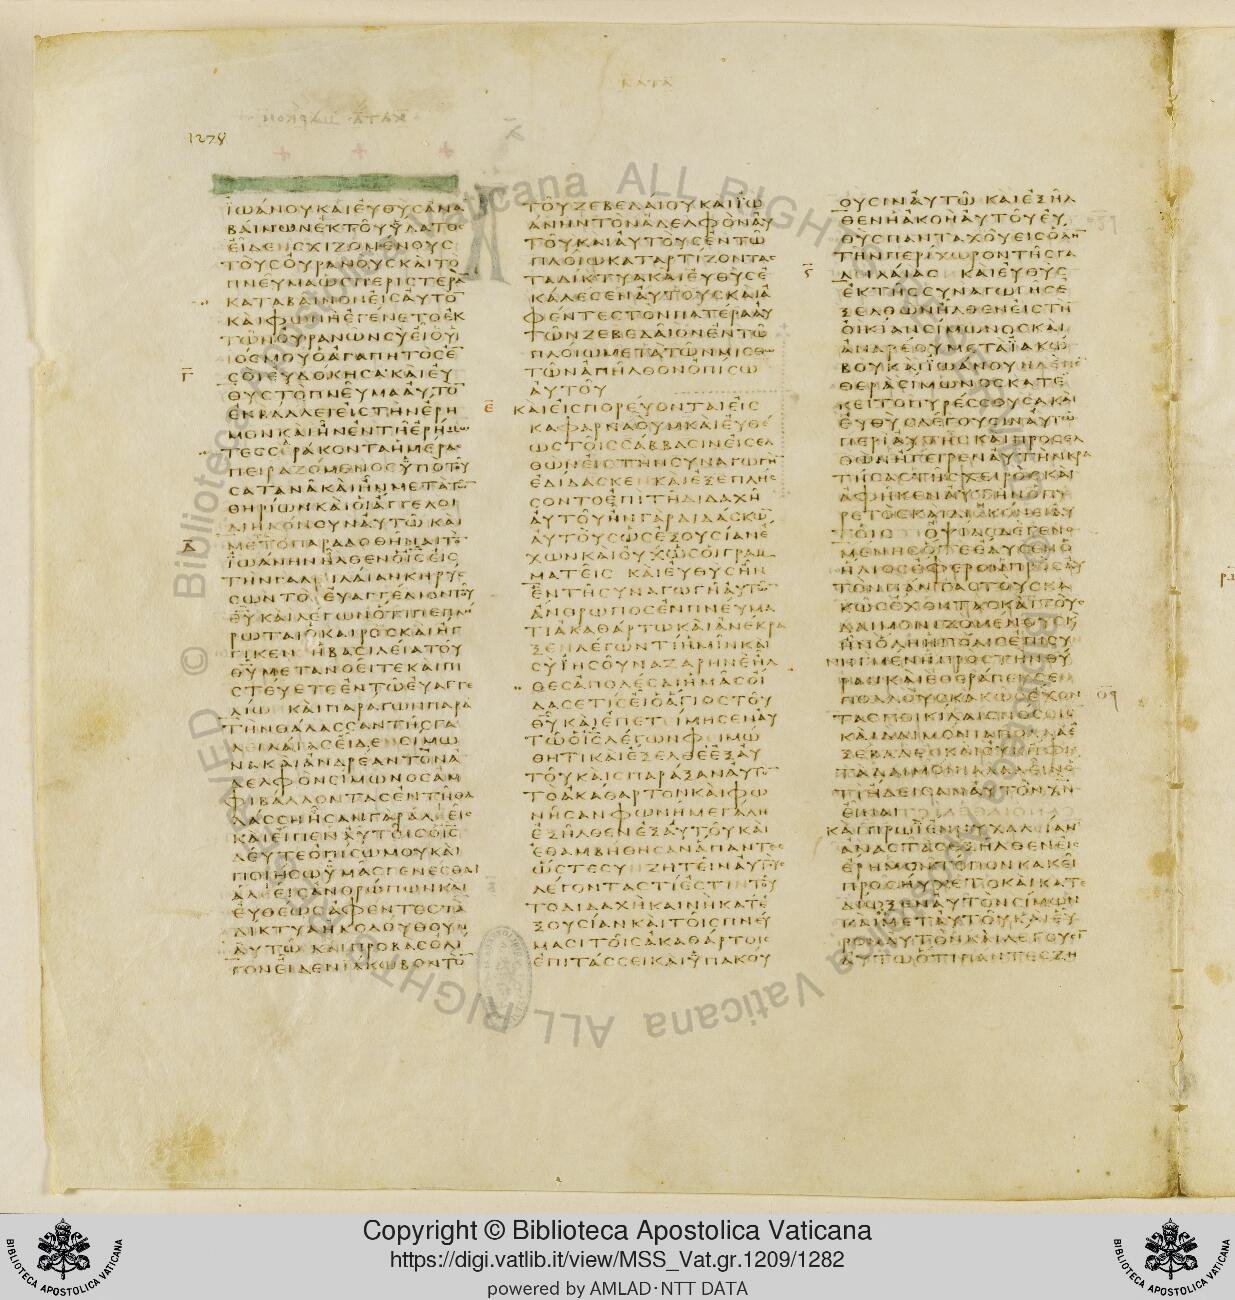 ΚΑΤΑ
1278
ΙΩΑΝΟΥΚΑΙΕΥΘΥCΑΝΑ
ΒΑΙΝΩΝΕΚΤΟΥΥΔΑΤΟC
ΕΙΔΕΝCΧΙΖΟΜΕΝΟΥC
ΤΟΥCΟΥΡΑΝΟΥCΚΑΙΤΟ
ΠΝΕΥΜΑΩCΠΕΡΙCΤΕΡΑ
ΚΑΤΑΒΑΙΝΟΝΕΙCΑΥΤΟ
ΚΑΙΦΩΝΗΕΓΕΝΕΤΟΕΚ
ΤΩΝΟΥΡΑΝΩΝCΥΕΙΟΥΙ
ΙΟCΜΟΥΟΑΓΑΠΗΤΟCΕ
Γ
CΟΙΕΥΔΟΚΗCΑΚΑΙΕΥ
ΘΥCΤΟΠΝΕΥΜΑΑΥΤΟ
ΕΚΒΑΛΛΕΙΕΙCΤΗΝΕΡΗ
ΜΟΝΚΑΙΗΝΕΝΤΗΕΡΗΜΩ
ΤΕCCΕΡΑΚΟΝΤΑΗΜΕΡΑC
ΠΕΙΡΑΖΟΜΕΝΟCΥΠΟΤΟΥ
CΑΤΑΝΑΚΑΙΗΝΜΕΤΑΤΩ
ΘΗΡΙΩΝΚΑΙΟΙΑΓΓΕΛΟΙ
ΔΙΗΚΟΝΟΥΝΑΥΤΩ ΚΑΙ
Δ
ΜΕΤΟΠΑΡΑΔΟΘΗΝΑΙΤΟ
ΙΩΑΝΗΝΗΛΘΕΝΟΙCΕΙC
ΤΗΝΓΑΛΕΙΛΑΙΑΝΚΗΡΥC
CΩΝΤΟΕΥΑΓΓΕΛΙΟΝΤΟΥ
ΘΥΚΑΙΛΕΓΩΝΟΤΙΠΕΠΛΗ
ΡΩΤΑΙΟΚΑΙΡΟCΚΑΙΗΓ
ΓΙΚΕΝ ΗΒΑCΙΛΕΙΑΤΟΥ
ΘΥΜΕΤΑΝΟΕΙΤΕΚΑΙΠΙ
CΤΕΥΕΤΕΕΝΤΩΕΥΑΓΓΕ
ΛΙΩ ΚΑΙΠΑΡΑΓΩΝΠΑΡΑ
ΤΗΝΘΑΛΑCCΑΝΤΗCΓΑ
ΛΕΙΛΑΙΑCΕΙΔΕΝCΙΜΩ
ΝΑΚΑΙΑΝΔΡΕΑΝΤΟΝΑ
ΔΕΛΦΟΝCΙΜΩΝΟCΑΜ
ΦΙΒΑΛΛΟΝΤΑCΕΝΤΗΘΑ
ΛΑCCΗΗCΑΝΓΑΡΑΛΕΕΙC
ΚΑΙΕΙΠΕΝΑΥΤΟΙCΟΙC
ΔΕΥΤΕΟΠΙCΩΜΟΥΚΑΙ
ΠΟΙΗCΩΥΜΑCΓΕΝΕCΘΑΙ
ΑΛΕΕΙCΑΝΘΡΩΠΩΝΚΑΙ
ΕΥΘΕΩCΑΦΕΝΤΕCΤΑ
ΔΙΚΤΥΑΗΚΟΛΟΥΘΟΥΝ
ΑΥΤΩ ΚΑΙΠΡΟΒΑCΟΛΙ
ΓΟΝΕΙΔΕΝΙΑΚΩΒΟΝΤΟ
ΤΟΥΖΕΒΕΔΑΙΟΥΚΑΙΙΩ
ΑΝΗΝΤΟΝΑΔΕΛΦΟΝΑΥ
ΤΟΥΚΑΙΑΥΤΟΥCΕΝΤΩ
ΠΛΟΙΩΚΑΤΑΡΤΙΖΟΝΤΑC
ΤΑΔΙΚΤΥΑΚΑΙΕΥΘΥCΕ
ΚΑΛΕCΕΝΑΥΤΟΥCΚΑΙΑ
ΦΕΝΤΕCΤΟΝΠΑΤΕΡΑΑΥ
ΤΩΝΖΕΒΕΔΑΙΟΝΕΝΤΩ
ΠΛΟΙΩΜΕΤΑΤΩΝΜΙCΘΩ
ΤΩΝΑΠΗΛΘΟΝΟΠΙCΩ
ΑΥΤΟΥ
Ε
ΚΑΙΕΙCΠΟΡΕΥΟΝΤΑΙΕΙC
ΚΑΦΑΡΝΑΟΥΜΚΑΙΕΥΘΕ
ΩCΤΟΙCCΑΒΒΑCΙΝΕΙCΕΛ
ΘΩΝΕΙCΤΗΝCΥΝΑΓΩΓΗ
ΕΔΙΔΑCΚΕΝ ΚΑΙΕΞΕΠΛΗC
CΟΝΤΟΕΠΙΤΗΔΙΔΑΧΗ
ΑΥΤΟΥΗΝΓΑΡΔΙΔΑCΚΩ
ΑΥΤΟΥCΩCΕΞΟΥCΙΑΝΕ
ΧΩΝΚΑΙΟΥΧΩCΟΙΓΡΑΜ
ΜΑΤΕΙC ΚΑΙΕΥΘΥCΗΝ
ΕΝΤΗCΥΝΑΓΩΓΗΑΥΤΩ
ΑΝΘΡΩΠΟCΕΝΠΝΕΥΜΑ
ΤΙΑΚΑΘΑΡΤΩΚΑΙΑΝΕΚΡΑ
ΞΕΝΛΕΓΩΝΤΙΗΜΙΝΚΑΙ
CΥΙΗCΟΥΝΑΖΑΡΗΝΕΗΛ
ΘΕCΑΠΟΛΕCΑΙΗΜΑCΟΙ
ΔΑCΕΤΙCΕΙΟΑΓΙΟCΤΟΥ
ΘΥΚΑΙΕΠΕΤΕΙΜΗCΕΝΑΥ
ΤΩΟΙCΛΕΓΩΝΦΕΙΜΩ
ΘΗΤΙΚΑΙΕΞΕΛΘΕΕΞΑΥ
ΤΟΥΚΑΙCΠΑΡΑΞΑΝΑΥΤΟ
ΤΟΑΚΑΘΑΡΤΟΝΚΑΙΦΩ
ΝΗCΑΝΦΩΝΗΜΕΓΑΛΗ
ΕΞΗΛΘΕΝΕΞΑΥΤΟΥΚΑΙ
ΕΘΑΜΒΗΘΗCΑΝΑΠΑΝΤΕC
ΩCΤΕCΥΝΖΗΤΕΙΝΑΥΤΟΥC
ΛΕΓΟΝΤΑCΤΙΕCΤΙΝΤΟΥ
ΤΟΔΙΔΑΧΗΚΑΙΝΗΚΑΤΕ
ΞΟΥCΙΑΝΚΑΙΤΟΙCΠΝΕΥ
ΜΑCΙΤΟΙCΑΚΑΘΑΡΤΟΙC
ΕΠΙΤΑCCΕΙΚΑΙΥΠΑΚΟΥ
ΟΥCΙΝΑΥΤΩ ΚΑΙΕΞΗΛ
ΘΕΝΗΑΚΟΗΑΥΤΟΥΕΥ
ΘΥCΠΑΝΤΑΧΟΥΕΙCΟΛΗ
ΤΗΝΠΕΡΙΧΩΡΟΝΤΗCΓΑ
ϛ
ΛΕΙΛΑΙΑC ΚΑΙΕΥΘΥC
ΕΚΤΗCCΥΝΑΓΩΓΗCΕ
ΞΕΛΘΩΝΗΛΘΕΝΕΙCΤΗ
ΟΙΚΙΑΝCΙΜΩΝΟCΚΑΙ
ΑΝΔΡΕΟΥΜΕΤΑΙΑΚΩ
ΒΟΥΚΑΙΙΩΑΝΟΥΗΔΕΠΕ
ΘΕΡΑCΙΜΩΝΟCΚΑΤΕ
ΚΕΙΤΟΠΥΡΕCCΟΥCΑΚΑΙ
ΕΥΘΥCΛΕΓΟΥCΙΝΑΥΤΩ
ΠΕΡΙΑΥΤΗCΚΑΙΠΡΟCΕΛ
ΘΩΝΗΓΕΙΡΕΝΑΥΤΗΝΚΡΑ
ΤΗCΑCΤΗCΧΕΙΡΟCΚΑΙ
ΑΦΗΚΕΝΑΥΤΗΝΟΠΥ
ΡΕΤΟCΚΑΙΔΙΗΚΟΝΕΙΑΥ
ΤΟΙC ΟΨΙΑCΔΕΓΕΝΟ
ΜΕΝΗCΟΤΕΕΔΥCΕΝΟ
ΗΛΙΟCΕΦΕΡΟΝΠΡΟCΑΥ
ΤΟΝΠΑΝΤΑCΤΟΥCΚΑ
ΚΩCΕΧΟΝΤΑCΚΑΙΤΟΥC
ΔΑΙΜΟΝΙΖΟΜΕΝΟΥCΚ
ΗΝΟΛΗΗΠΟΛΙCΕΠΙCΥ
ΝΗΓΜΕΝΗΠΡΟCΤΗΝΘΥ
ΡΑΝΚΑΙΕΘΕΡΑΠΕΥCΕ
ΠΟΛΛΟΥCΚΑΚΩCΕΧΟΝ
ΤΑCΠΟΙΚΙΛΑΙCΝΟCΟΙC
ΚΑΙΔΑΙΜΟΝΙΑΠΟΛΛΑΕ
ΞΕΒΑΛΕΝΚΑΙΟΥΚΗΦΙΕ
ΤΑΔΑΙΜΟΝΙΑΛΑΛΕΙΝΟ
ΤΙΗΔΕΙCΑΝΑΥΤΟΝΧΝ
ΕΙΝΑΙ
ΚΑΙΠΡΩΙΕΝΝΥΧΑΛΕΙΑΝ
ΑΝΑCΤΑCΕΞΗΛΘΕΝΕΙC
ΕΡΗΜΟΝΤΟΠΟΝΚΑΚΕΙ
ΠΡΟCΗΥΧΕΤΟΚΑΙΚΑΤΕ
ΔΙΩΞΕΝΑΥΤΟΝCΙΜΩΝ
ΚΑΙΟΙΜΕΤΑΥΤΟΥΚΑΙΕΥ
ΡΟΝΑΥΤΟΝΚΑΙΛΕΓΟΥCΙ
ΑΥΤΩΟΤΙΠΑΝΤΕCΖΗ
© Biblioteca Apostolica Vaticana ALL RIGHTS RESERVED
Copyright © Biblioteca Apostolica Vaticana
https://digi.vatlib.it/view/MSS_Vat.gr.1209/1282
powered by AMLAD·NTT DATA
BIBLIOTECA APOSTOLICA VATICANA
BIBLIOTECA APOSTOLICA VATICANA